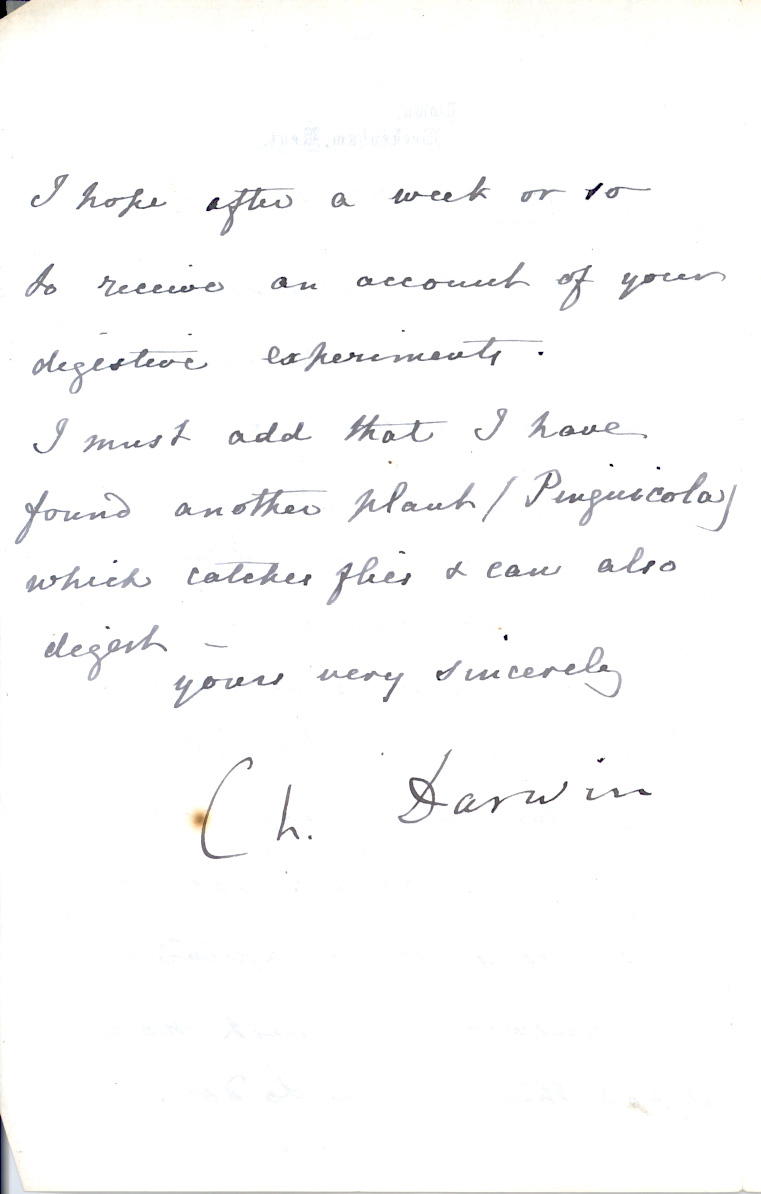 I hope after a week or so
to receive an account of your
digestive experiments.
I must add that I have
found another plant (Pinguicola)
which catches flies & can also
digest –
yours very sincerely
Ch. Darwin